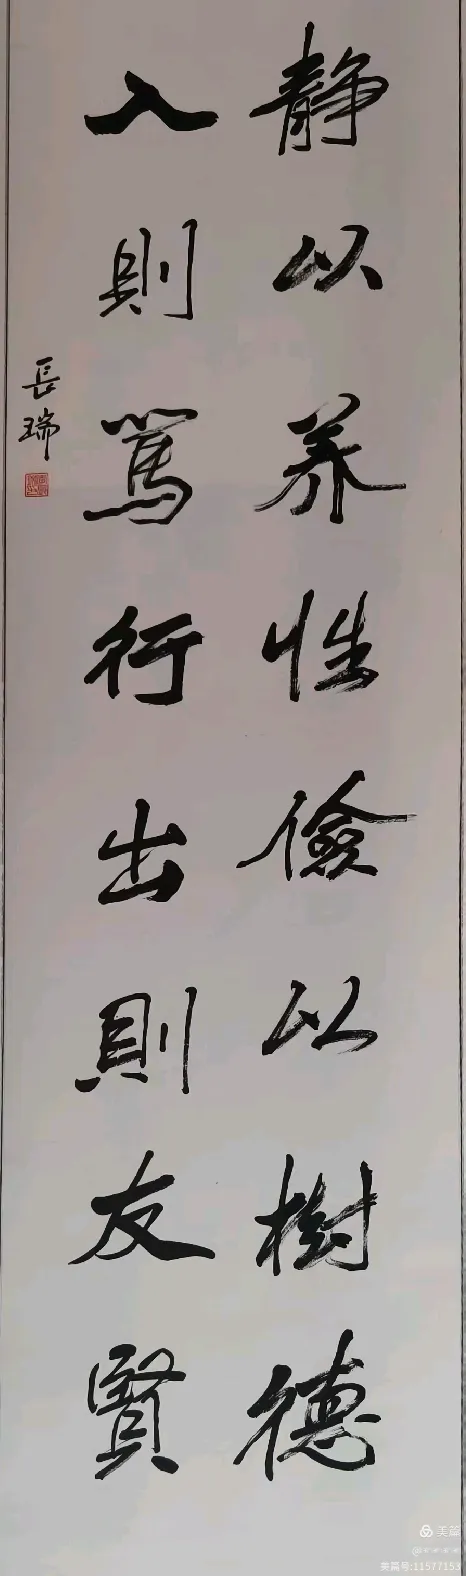 静以养性儉以樹德
入則篤行出則友賢
長瑞
美篇
美篇号:11577153